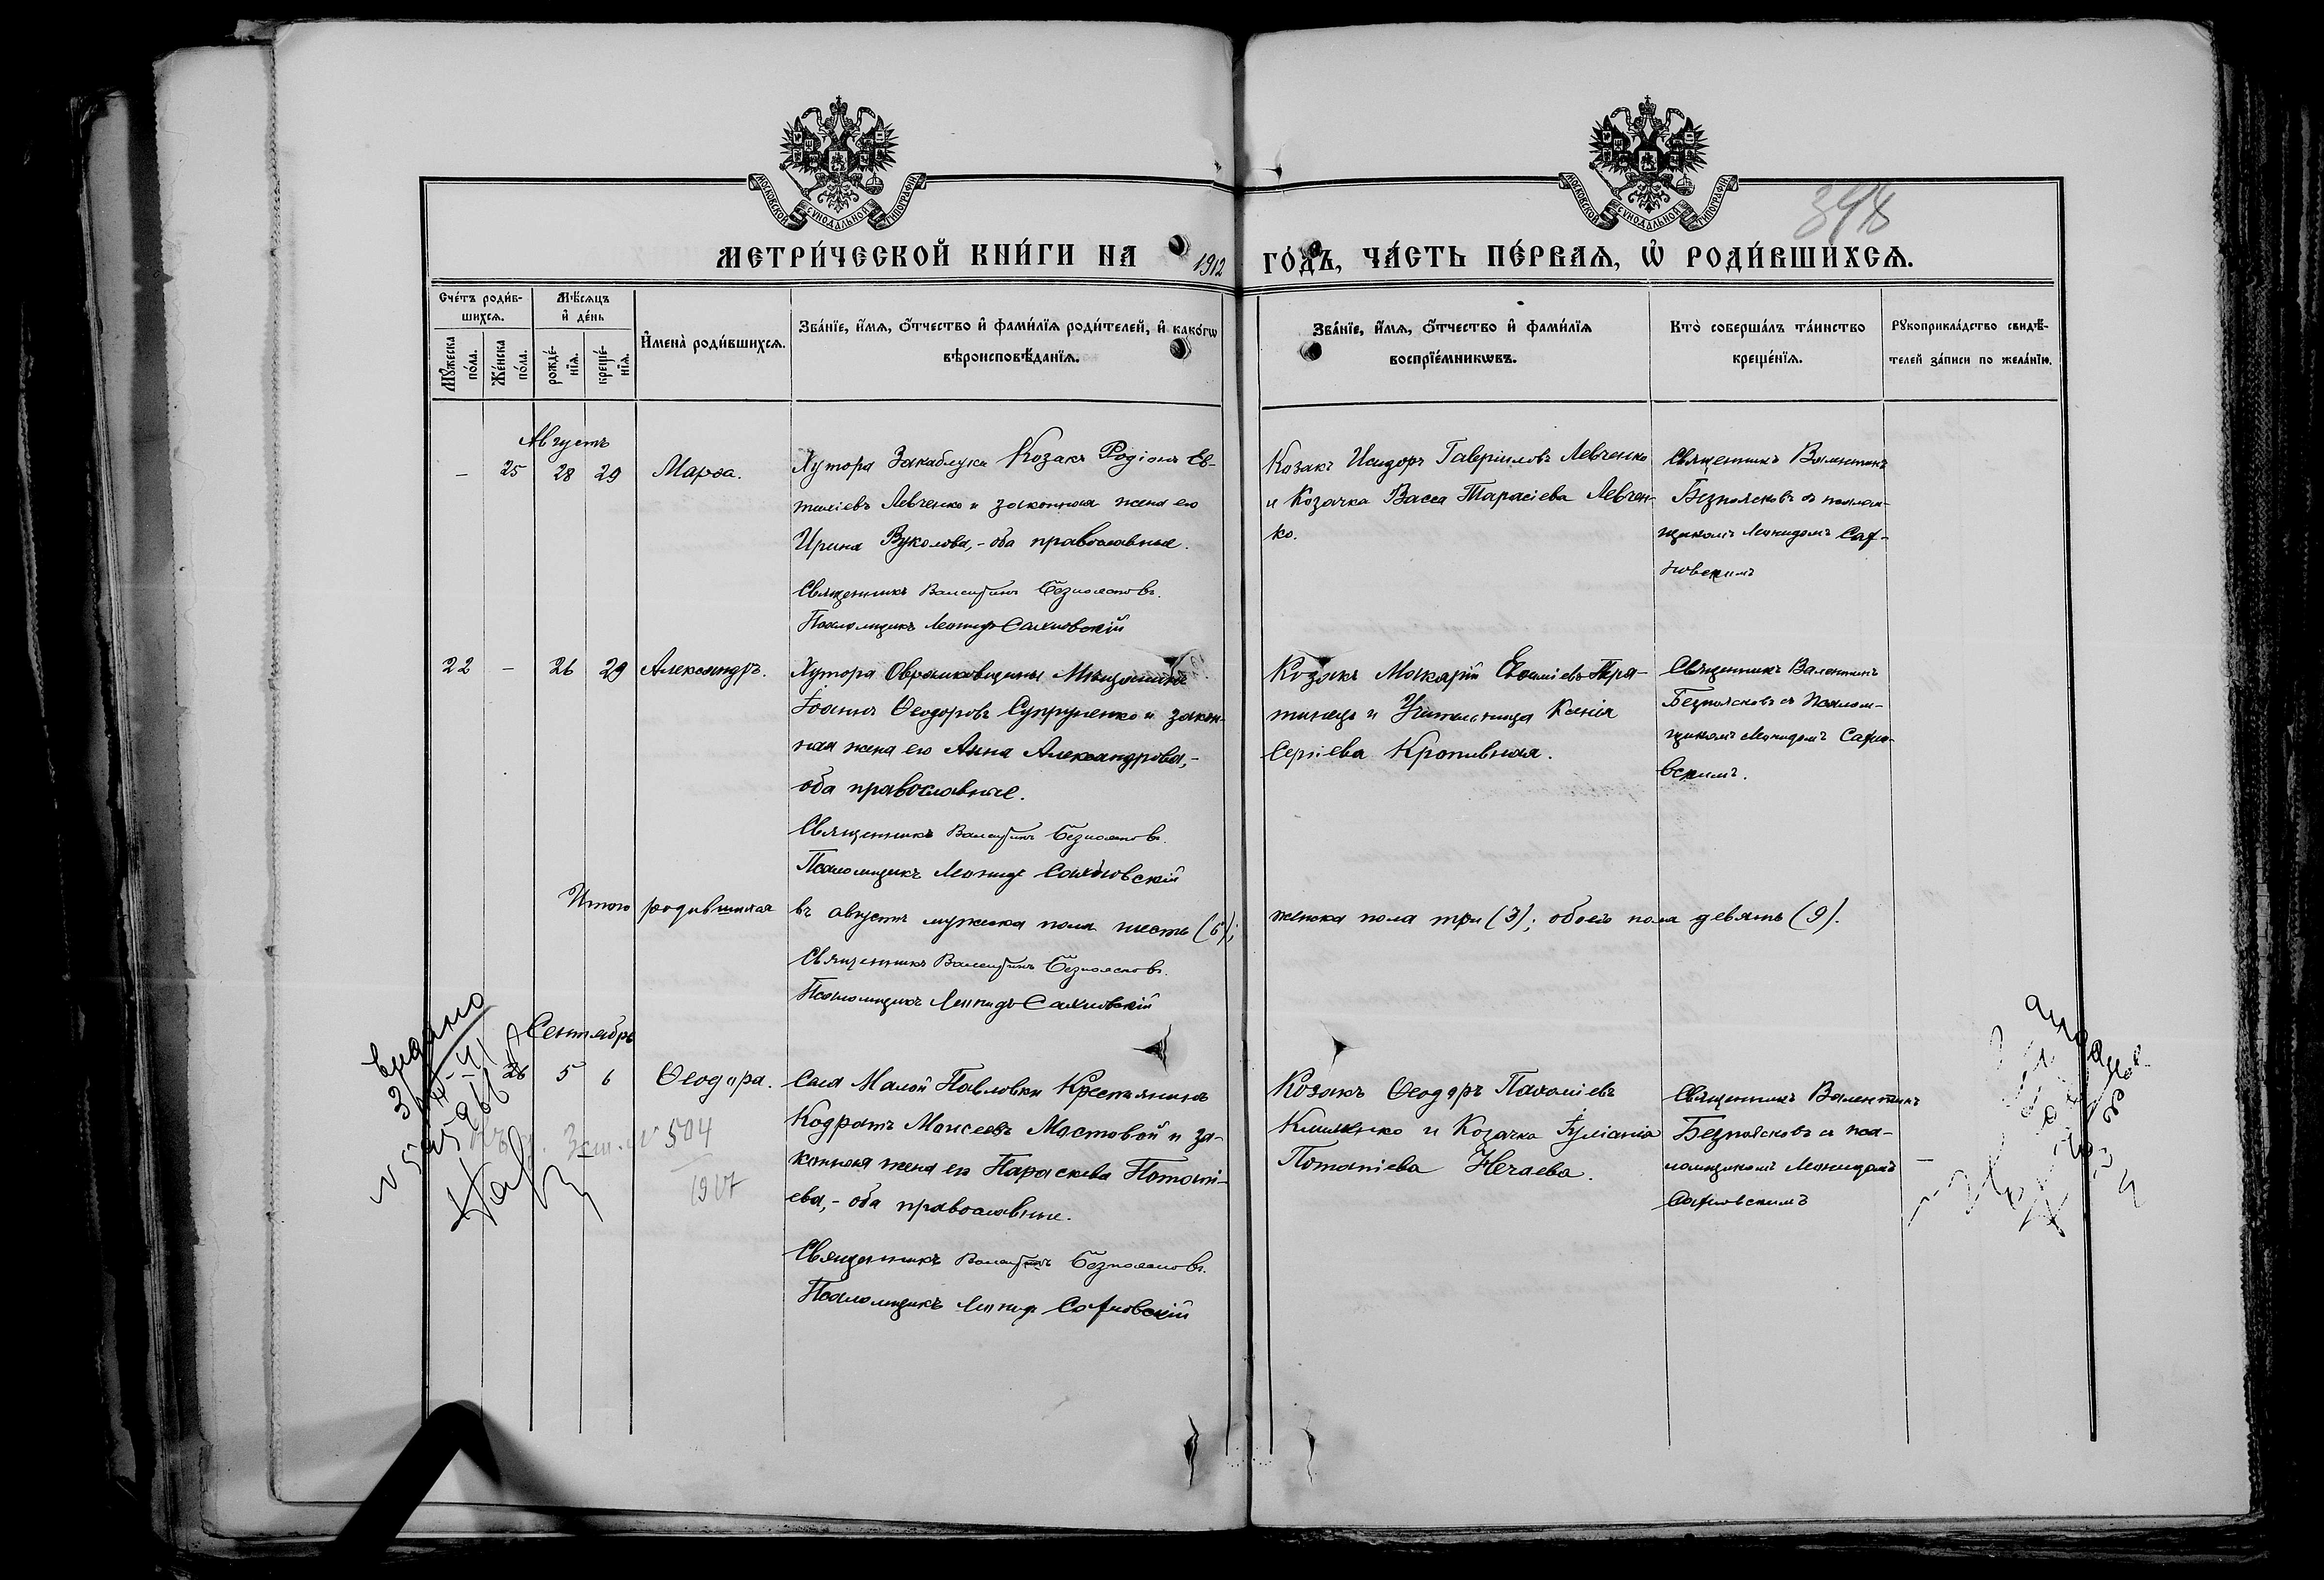 МОСКОВСКОЙ СѴНОДАЛЬНОЙ ТИПОГРАФІИ
МОСКОВСКОЙ СѴНОДАЛЬНОЙ ТИПОГРАФІИ
348
МЕТРИ́ЧЕСКОЙ КНИ́ГИ НА 1912 ГО́ДЪ, ЧА́СТЬ ПЕ́РВАЯ, Ѡ҆ РОДИ́ВШИХСЯ.
Сче́тъ роди́в-
шихся.
Мѹ́жеска по́ла.
Же́нска по́ла.
Мѣ́сяцъ и҆ де́нь
рожде́-
нїя.
креще́-
нїя.
И҆мена̀ роди́вшихся.
Зва́нїе, и҆́мя, ѻ҆́тчество и҆ фами́лїя роди́телей, и҆ како́гѡ
вѣроисповѣ́данїя.
Зва́нїе, и҆́мя, ѻ҆́тчество и҆ фами́лїя
воспрїе́мникѡвъ.
Кто̀ соверша́лъ та́инство
креще́нїя.
Рѹкоприкла́дство свидѣ́-
телей за́писи по жела́нїю.
Августъ
- 25 28 29 Марѳа.
Хутора Закаблуки Козакъ Родіонъ Ев-
тиміевъ Левченко и законная жена его
Ирина Вуколова,- оба православные.
Священникъ Валентинъ Безпоясковъ.
Псаломщикъ Леонидъ Сахновскій
Козакъ Исидоръ Гавріиловъ Левченко
и Козачка Васса Тарасіева Левчен-
ко.
Священникъ Валентинъ
Безпоясковъ съ псалом-
щикомъ Леонидомъ Сах-
новскимъ
22 - 26 29 Александръ.
Хутора Мѣщанинъ
Іоаннъ Ѳеодоровъ Супруненко и закон-
ная жена его Анна Александрова,-
оба православные.
Священникъ Валентинъ Безпоясковъ.
Псаломщикъ Леонидъ Сахновскій
Козакъ Макарій Евѳиміевъ
и Учительница Ксенія
Сергіева Кропивная.
Священникъ Валентинъ
Безпоясковъ съ Псалом-
щикомъ Леонидомъ Сахно-
вскимъ.
Итого родившихся въ августѣ мужеска пола шесть (6); женска пола три (3); обоего пола девять (9).
Священникъ Валентинъ Безпоясковъ.
Псаломщикъ Леонидъ Сахновскій
Сентябрь
26 5 6 Ѳеодора.
Села Малой Павловки Крестьянинъ
Кодратъ Моисеевъ Мостовой и за-
конная жена его Параскева Потапі-
ева,- оба православные.
Священникъ Валентинъ Безпоясковъ.
Псаломщикъ Леонидъ Сахновскій
Козакъ Ѳеодоръ Пахоміевъ
и Козачка Іуліанія
Потапіева Нечаева.
Священникъ Валентинъ
Безпоясковъ съ пса-
ломщикомъ Леонидомъ
Сахновскимъ
видано
504